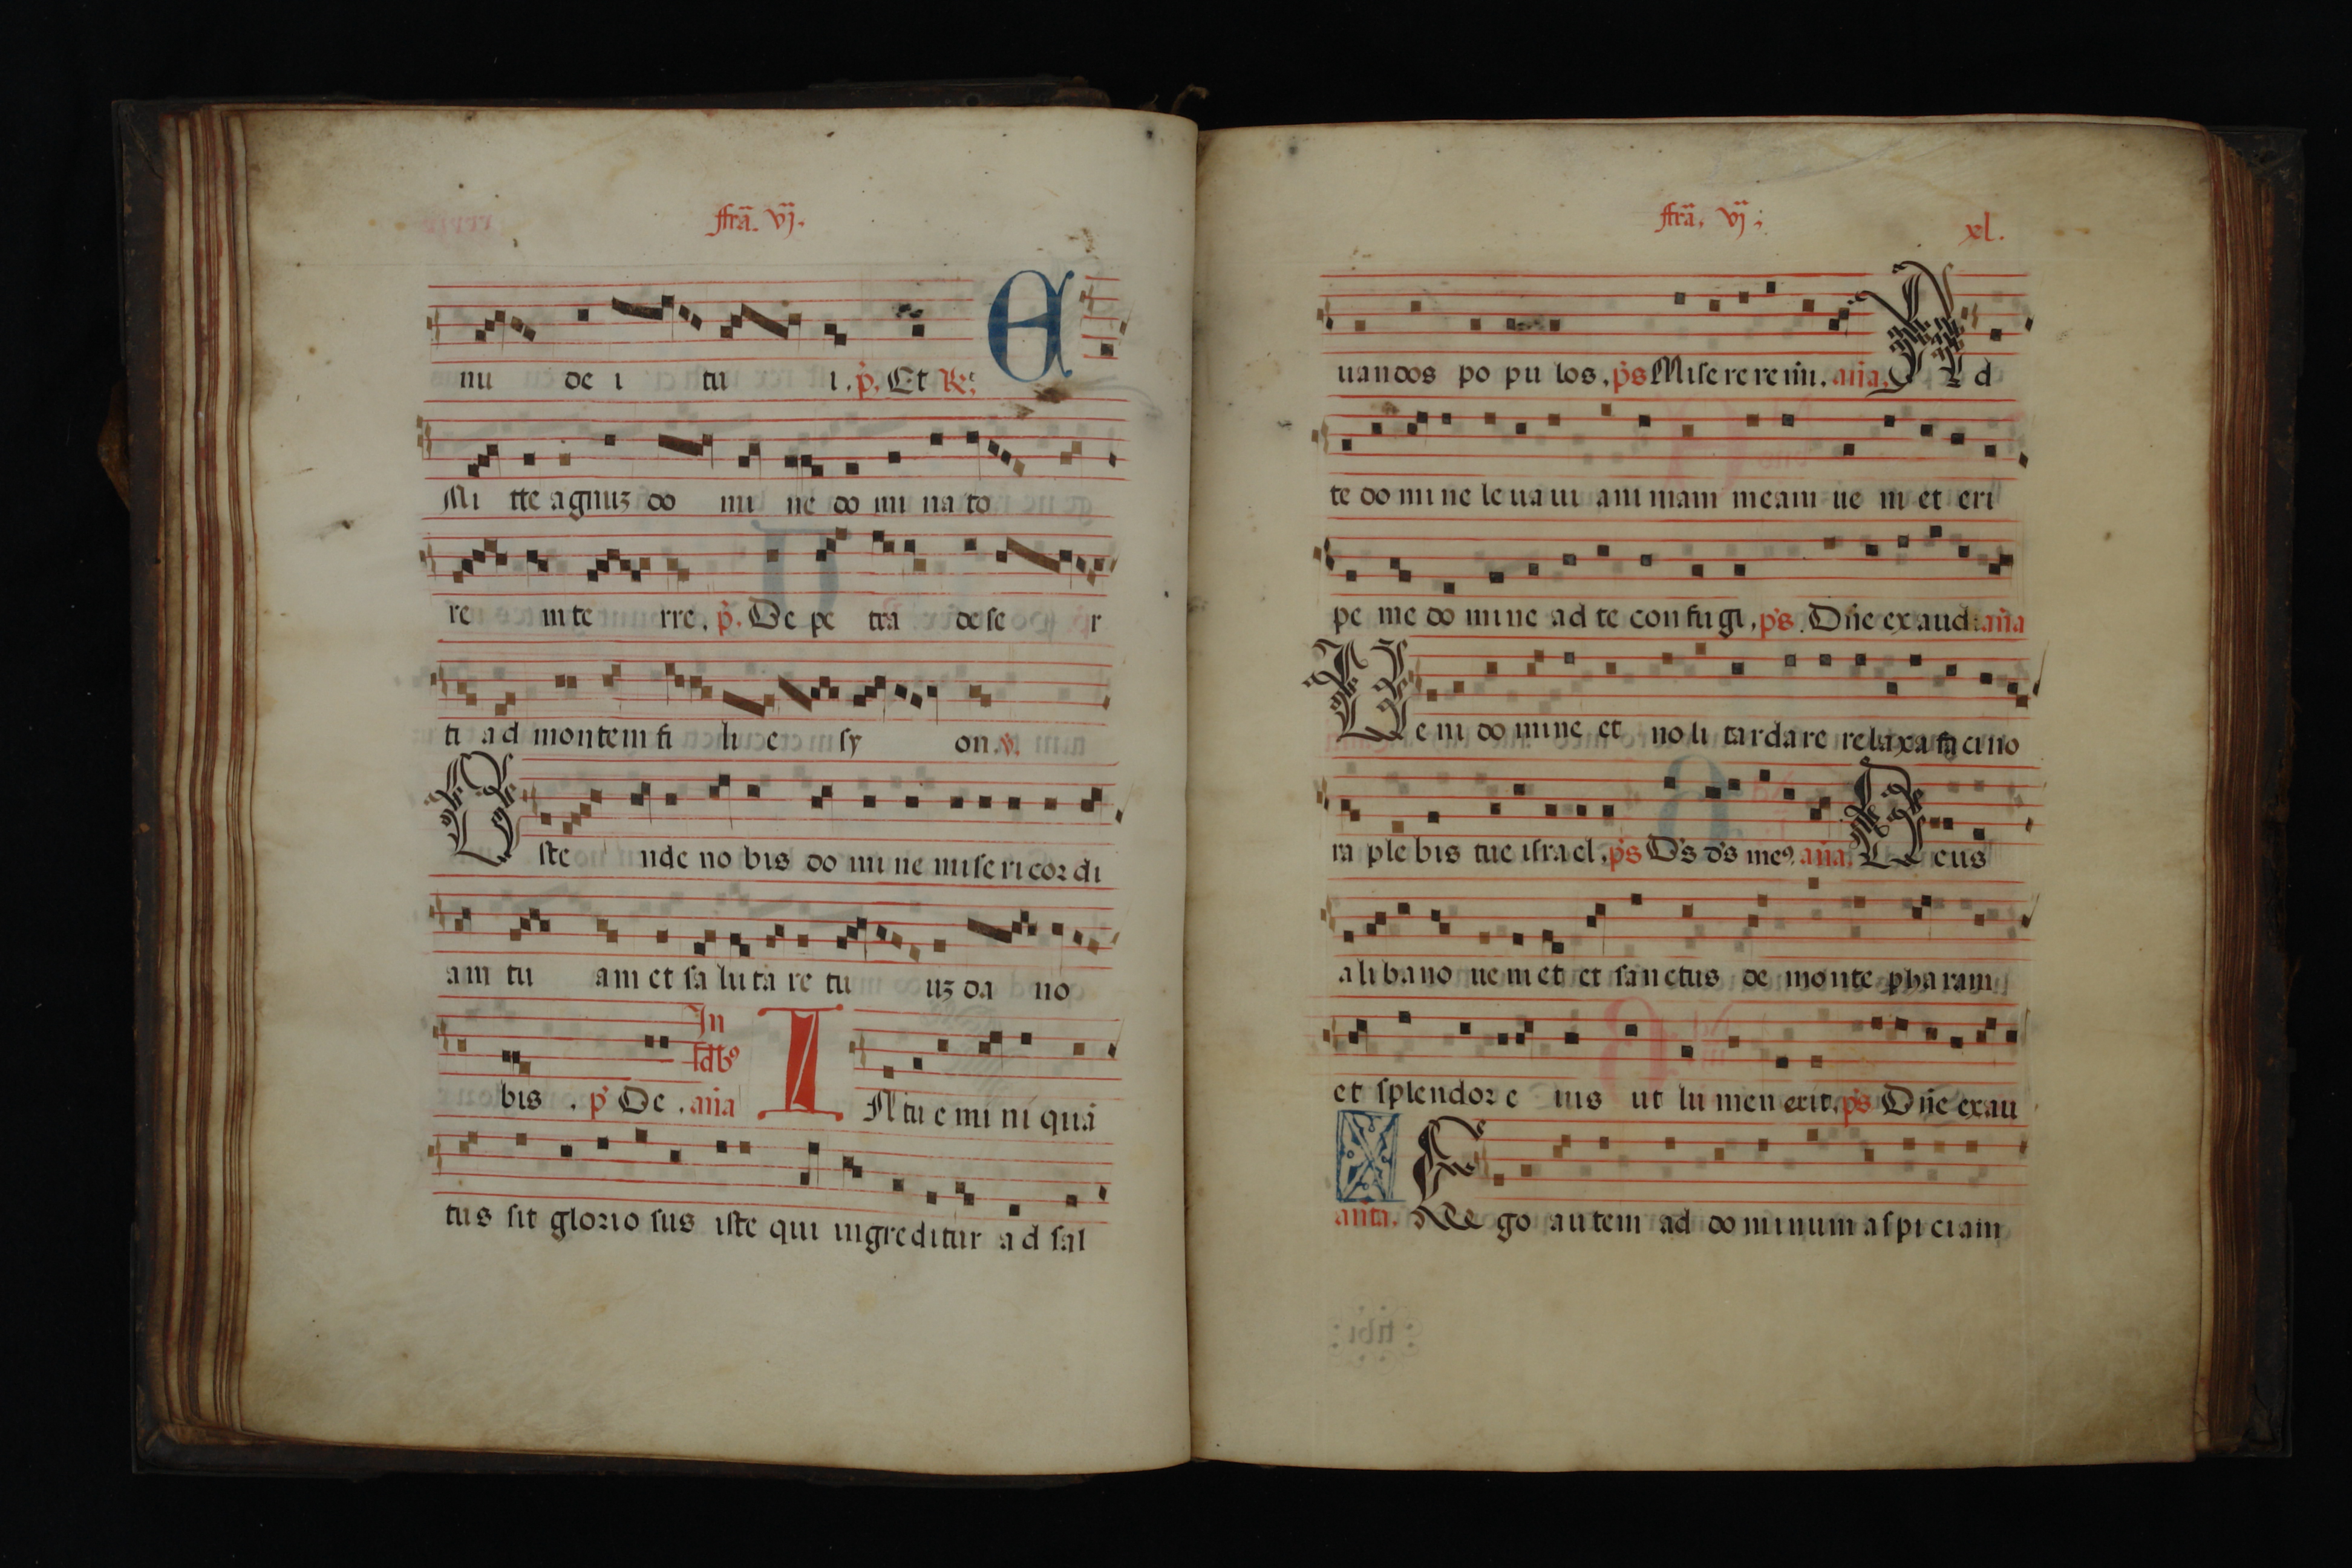 ffrã. vj.
nu de i tu i. p̃. Et R̃.
E Mi tte agnuꝫ do mi ne do mi na to
re m te rre. p̃. De pe tra de se r
ti ad montem fi li e sy on. ꝟ.
Oste nde no bis do mi ne mise ri coꝛ di
am tu am et sa lu ta re tu uꝫ da no
bis . p̃ De . añа In ldꝰ INtu e mi ni quã
tus sit gloꝛio sus iste qui ingreditur ad sal
ffrã. vj.
xl.
uandos po pu los. p̃s Mise re re m̃. aña. Ad
te do mi ne le ua ui ani mam meam ue ni et eri
pe me do mi ne ad te con fu gi. p̃s. Dñe ex aud. aña
Ue ni do mine et no li tardare relaxa facino
ra ple bis tue israel. p̃s D̃s d̃s meꝰ. aña. Deus
a li bano ueni et et sanctus de monte pharam
et splendoꝛ e ius ut lu men erit. p̃s Dñe exau
añta. Ego autem ad do minum aspi ciam